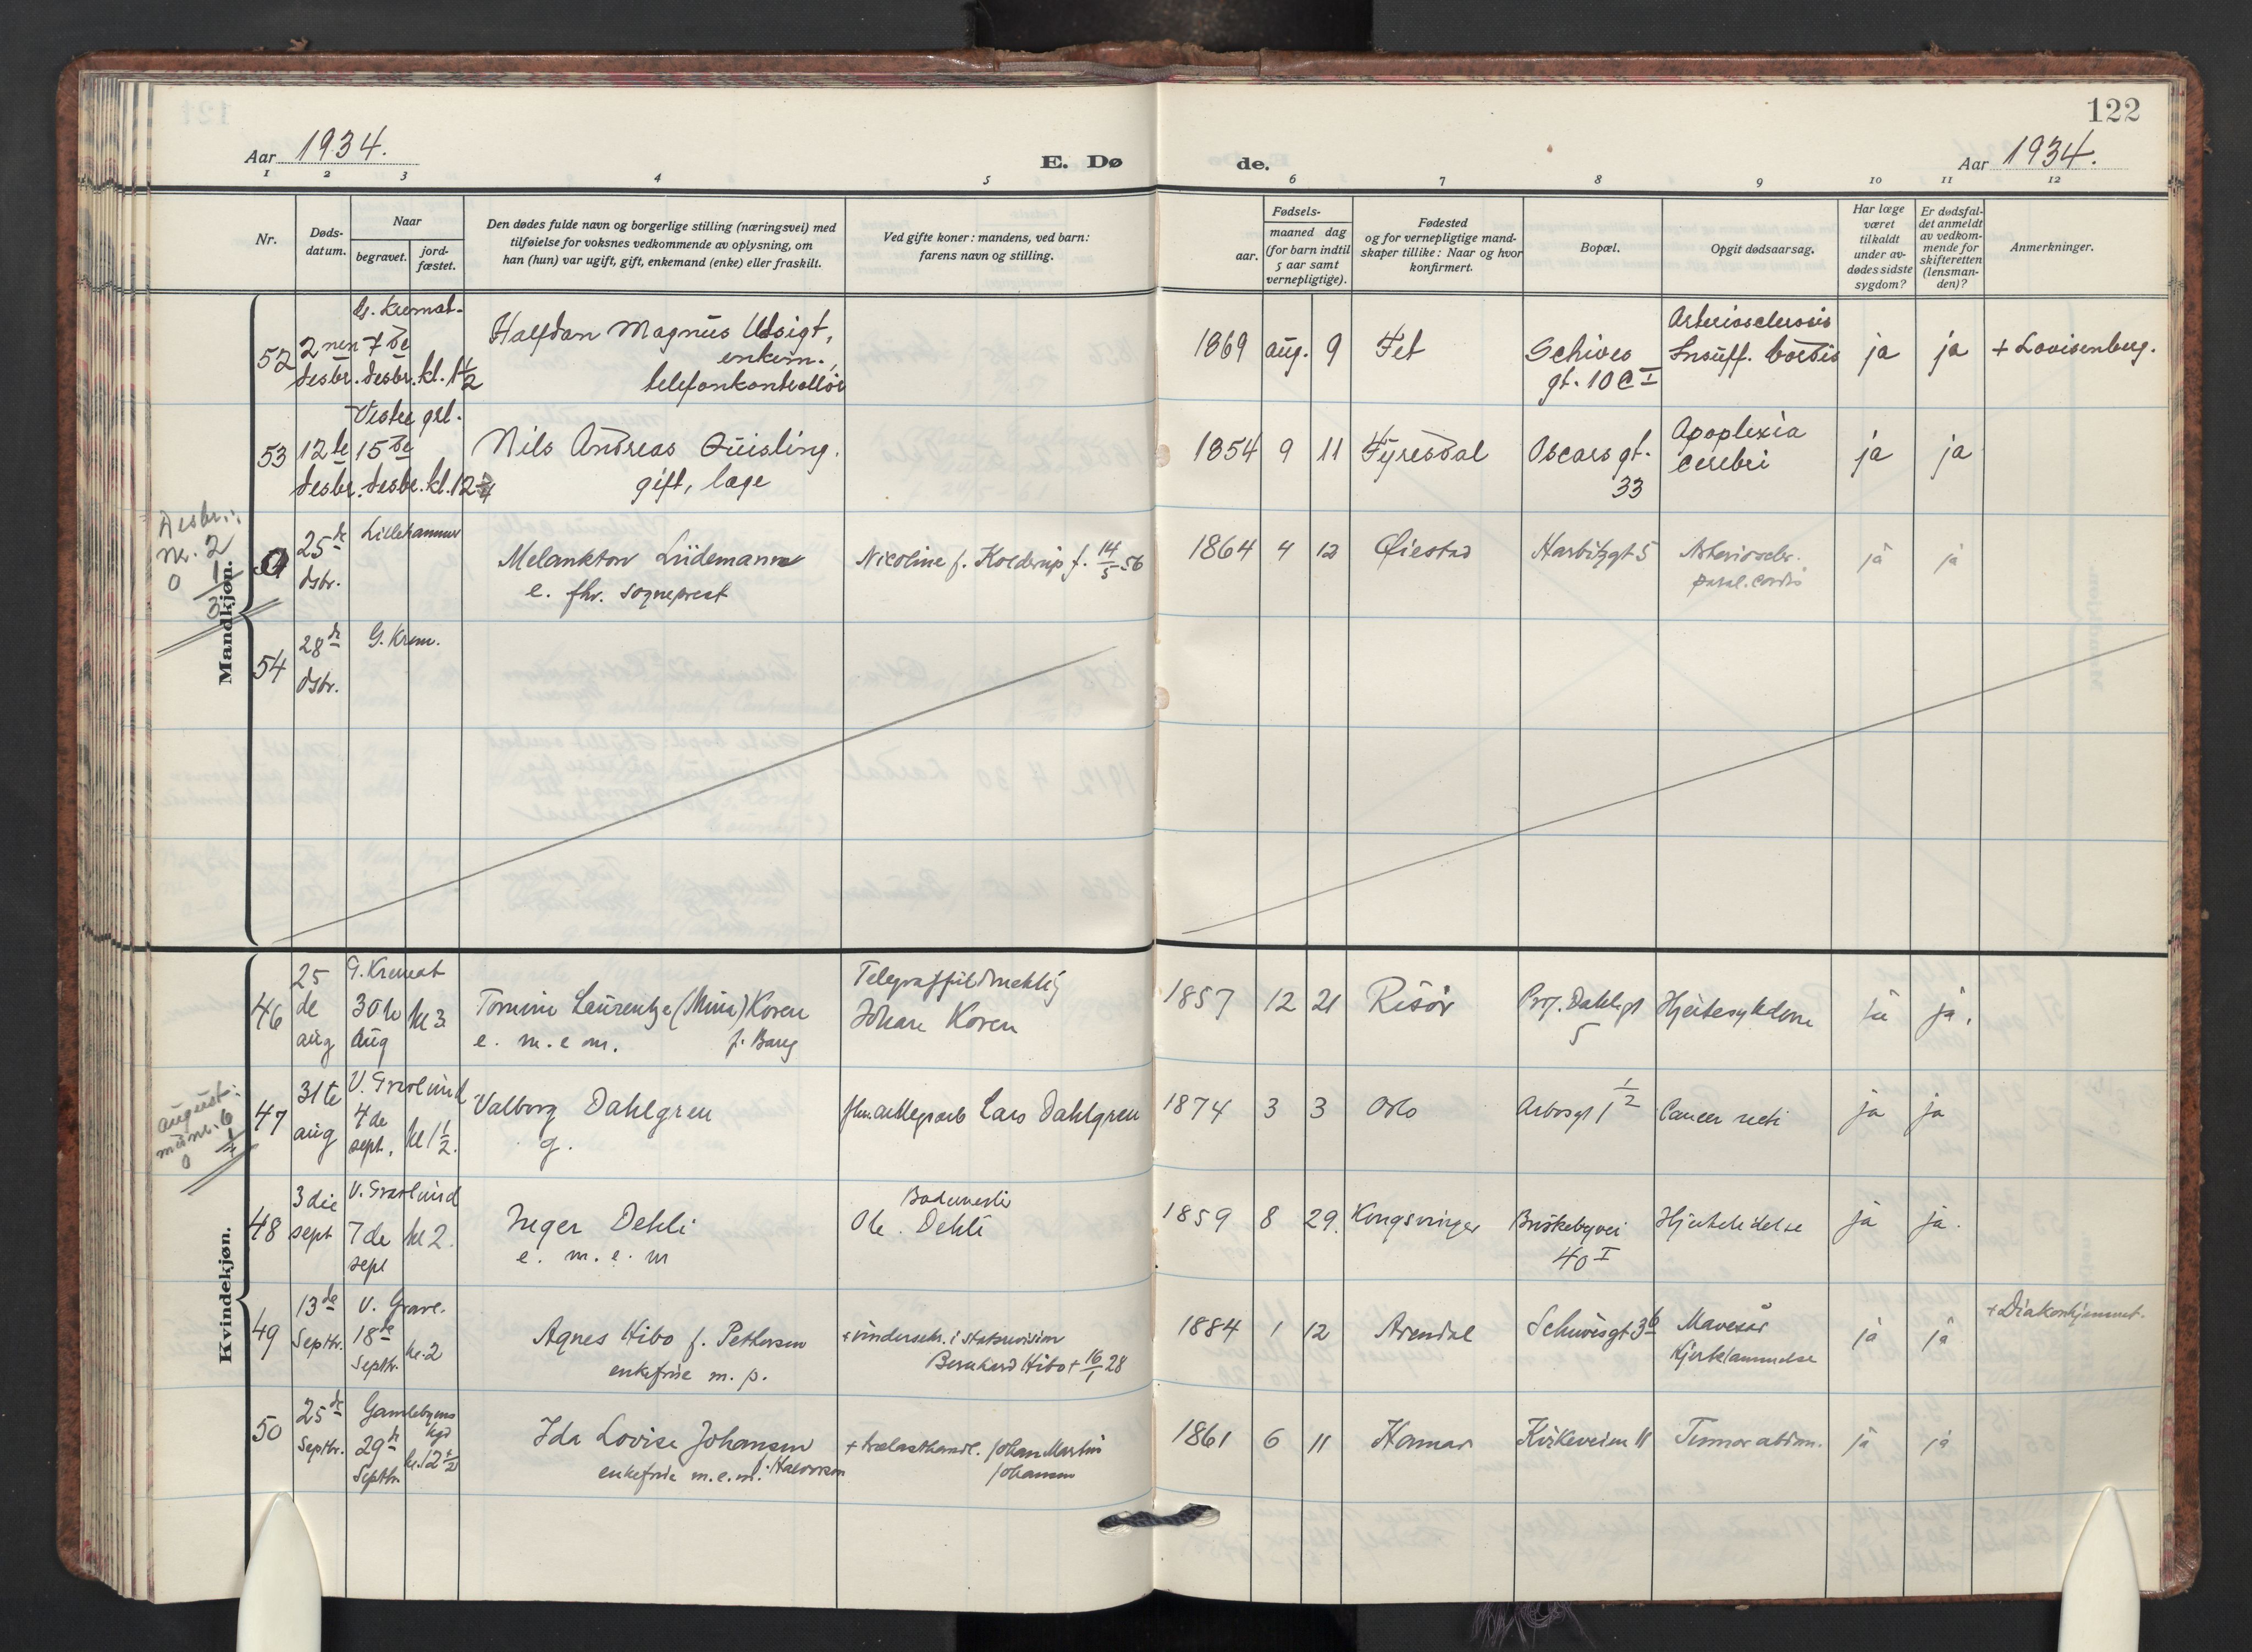 122
Aar 1934.
E. Dø
de.
Aar 1934.
1 2 3 4 5 6 7 8 9 10 11 12
Nr.
Døds-
datum.
Naar
begravet.
jord-
fæstet.
Den dødes fulde navn og borgerlige stilling (næringsvei) med
tilføielse for voksnes vedkommende av oplysning, om
han (hun) var ugift, gift, enkemand (enke) eller fraskilt.
Ved gifte koner: mandens, ved barn:
farens navn og stilling.
Fødsels-
aar.
maaned dag
(for barn indtil
5 aar samt
vernepligtige).
Fødested
og for vernepligtige mand-
skaper tillike: Naar og hvor
konfirmert.
Bopæl.
Opgit dødsaarsag.
Har læge
været
tilkaldt
under av-
dødes sidste
sygdom?
Er dødsfal-
det anmeldt
av vedkom-
mende for
skifteretten
(lensman-
den)?
Anmerkninger.
Mandkjøn.
52
2nen
desbr.
G. Kremat.
7de
desbr. kl. 1 1/2
Halfdan Magnus Udsigt,
enkem.,
telefonkontrollør
1869 aug. 9
Fet
Schives
gt. 10 C I
Arteriosclerosis
Insuff. cordis
ja
ja
+ Lovisenberg.
53
12te
desbr.
Vestre grl.
15de
desbr. kl. 12
Nils Andreas Quisling.
gift, læge
1854 9 11
Fyresdal
Oscars gt.
33
Apoplexia
cerebri
ja
ja
Desbr.:
m. 2
0 1
3
25de
dsbr.
Lillehammer
Melankton Lüdemann
e. fhv. sogneprest
Nicoline f. Kolderup f. 14/5 56
1864 4 12
Øiestad
Harbitzgt 5
Arterioscler.
paral. cordis
ja
ja
54
28de
dsbr.
G. Krem.
Kvindekjøn.
46
25
de
aug
G. Kremat
30te
aug
kl 3
Laurentze (Mina) Koren
e. m. e m. f. Bang
Johan Koren
1857 12 21
Risör
Prof. Dahls gt
5
Hjertesykdom
ja
ja.
august:
m 6
0
47
31te
aug
V. Gravlund
4de
sept.
kl 1 1/2.
Valborg Dahlgren
g.
Lars Dahlgren
1874 3 3
Oslo
Arbosgt 1 1/2
Cancer recti
ja
ja
48
3die
sept
V. Gravlund
7de
sept
kl 2.
Inger Dehli
e. m. e. m
Bademester
Ole Dehli
1859 8 29.
Kongsvinger
Briskebyvei
40 I
Hjertelidelse
ja
ja.
49
13de
Septbr.
V. Grave.
18de
Septbr.
kl. 2
Agnes Hibo f. Pettersen
enkefrue m. p.
+ undersekr. i statsrevision
Bernhard Hibo + 16/1 28
1884 1 12
Arendal
Schivesgt 3b
Mavesår
Hjertelammelse
ja
ja
+ Diakonhjemmet.
50
25de
Septbr.
Gamlebyens
kgd
29de
Septbr.
kl. 12 1/2
Ida Lovise Johansen
enkefrue m. e. m. f. Halvorsen
+ trælasthandl. Johan Martin
Johansen
1861 6 11
Hamar
Kirkeveien 11
Tumor abdom.
ja
ja